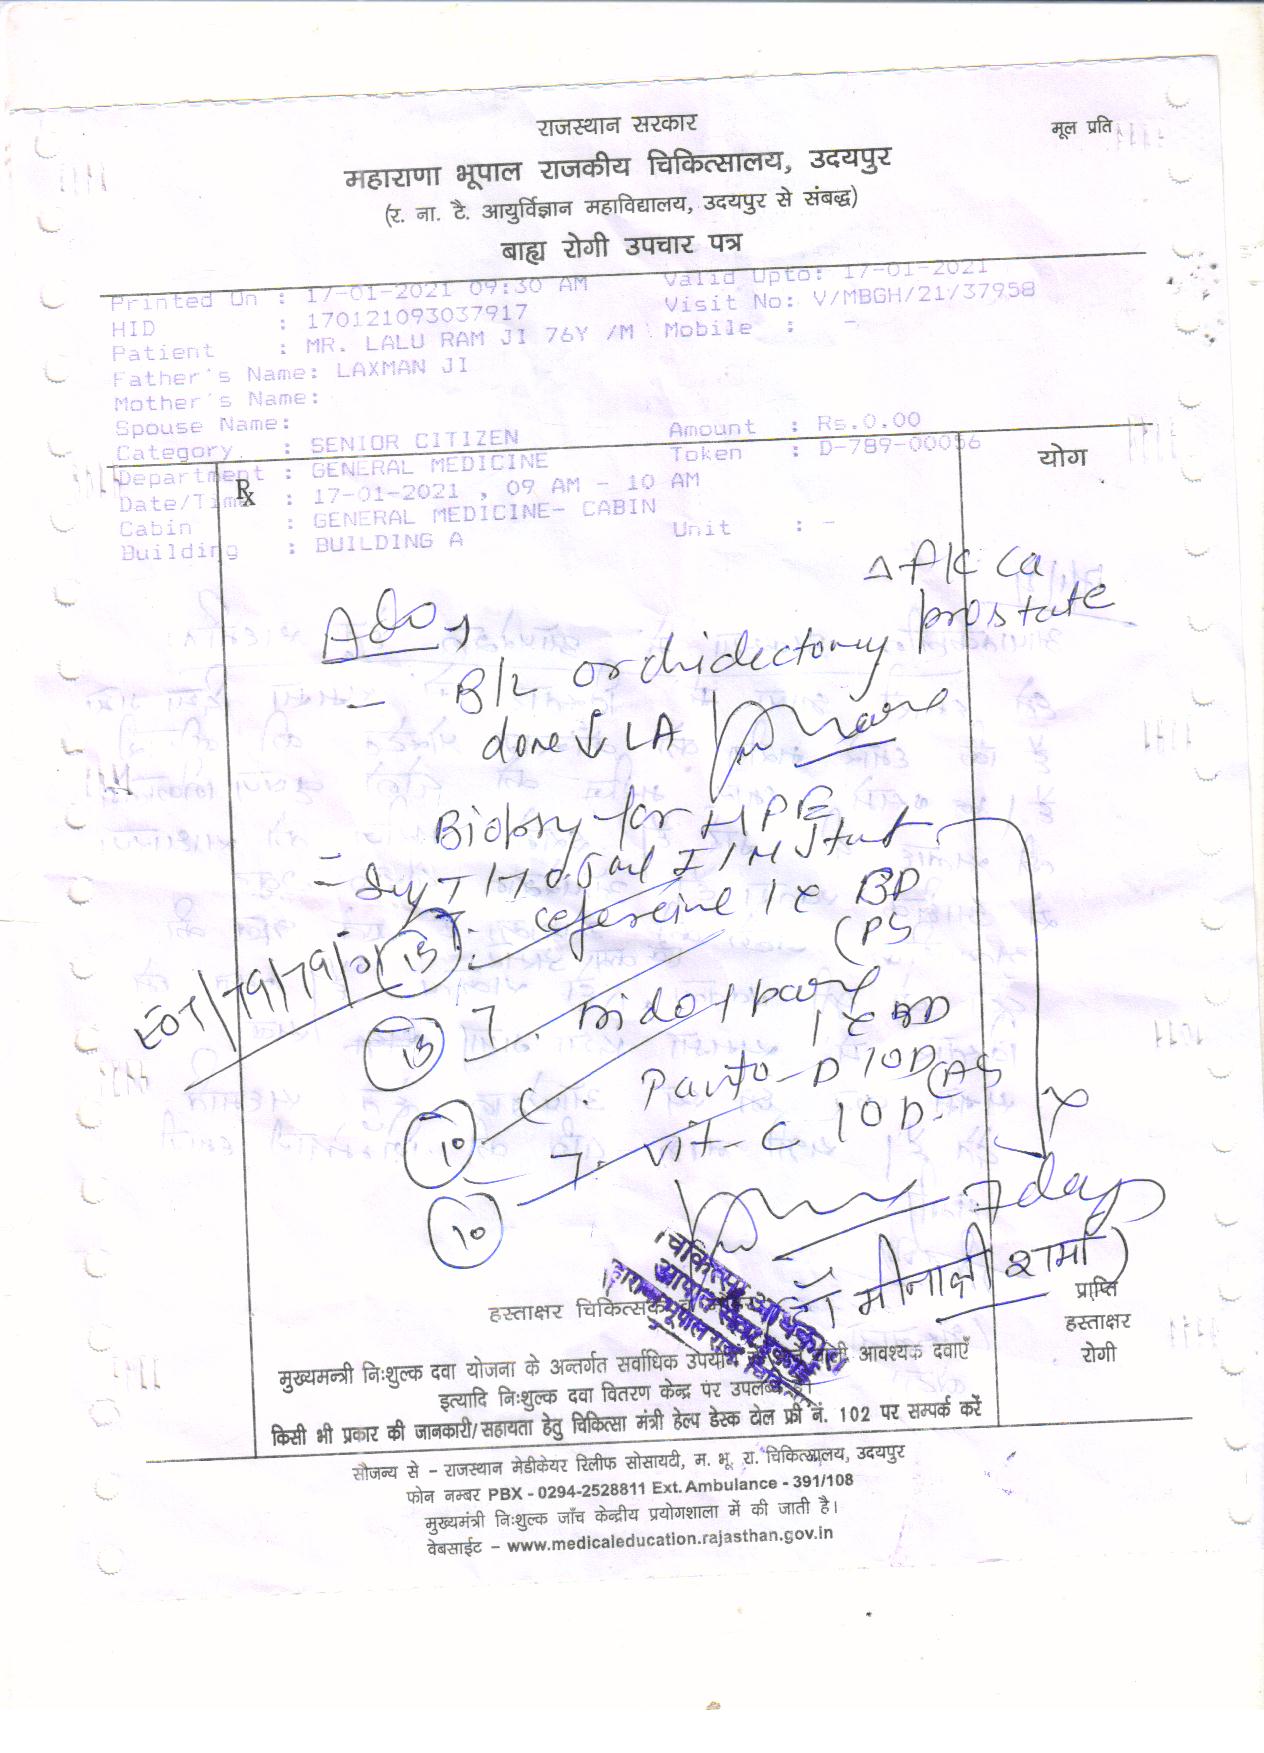 राजस्थान सरकार
मूल प्रति
महाराणा भूपाल राजकीय चिकित्सालय, उदयपुर
(र. ना. टै. आयुर्विज्ञान महाविद्यालय, उदयपुर से संबद्ध)
बाह्य रोगी उपचार पत्र
Printed On : 17-01-2021 09:30 AM Valid Upto: 17-01-2021
HID : 170121093037917 Visit No: V/MBGH/21/37958
Patient : MR. LALU RAM JI 76Y /M Mobile : -
Father's Name: LAXMAN JI
Mother's Name:
Spouse Name:
Category : SENIOR CITIZEN Amount : Rs.0.00
Department : GENERAL MEDICINE Token : D-789-00056
Date/Time : 17-01-2021 , 09 AM - 10 AM
Cabin : GENERAL MEDICINE- CABIN
Building : BUILDING A Unit : -
योग
Rx
Δ f/k/c Ca
prostate
Adv
- B/L Orchidectomy
done LA
Biopsy for HPE
T/T 0.5 ml I/M Stat
15 T. cefixime 1 x BD
(PS
15 T. 1 x BD
10 C. Panto-D 1 OD (AS
10 T. Vit-C 1 OD
x 7 days
डॉ मीनाक्षी शर्मा)
हस्ताक्षर चिकित्सक
प्राप्ति
हस्ताक्षर
रोगी
मुख्यमन्त्री निःशुल्क दवा योजना के अन्तर्गत सर्वाधिक उपयोग आवश्यक दवाएँ
इत्यादि निःशुल्क दवा वितरण केन्द्र पर उपलब्ध
किसी भी प्रकार की जानकारी/सहायता हेतु चिकित्सा मंत्री हेल्प डेस्क टोल फ्री नं. 102 पर सम्पर्क करें
सौजन्य से – राजस्थान मेडीकेयर रिलीफ सोसायटी, म. भू. रा. चिकित्सालय, उदयपुर
फोन नम्बर PBX - 0294-2528811 Ext. Ambulance - 391/108
मुख्यमंत्री निःशुल्क जाँच केन्द्रीय प्रयोगशाला में की जाती है।
वेबसाईट – www.medicaleducation.rajasthan.gov.in